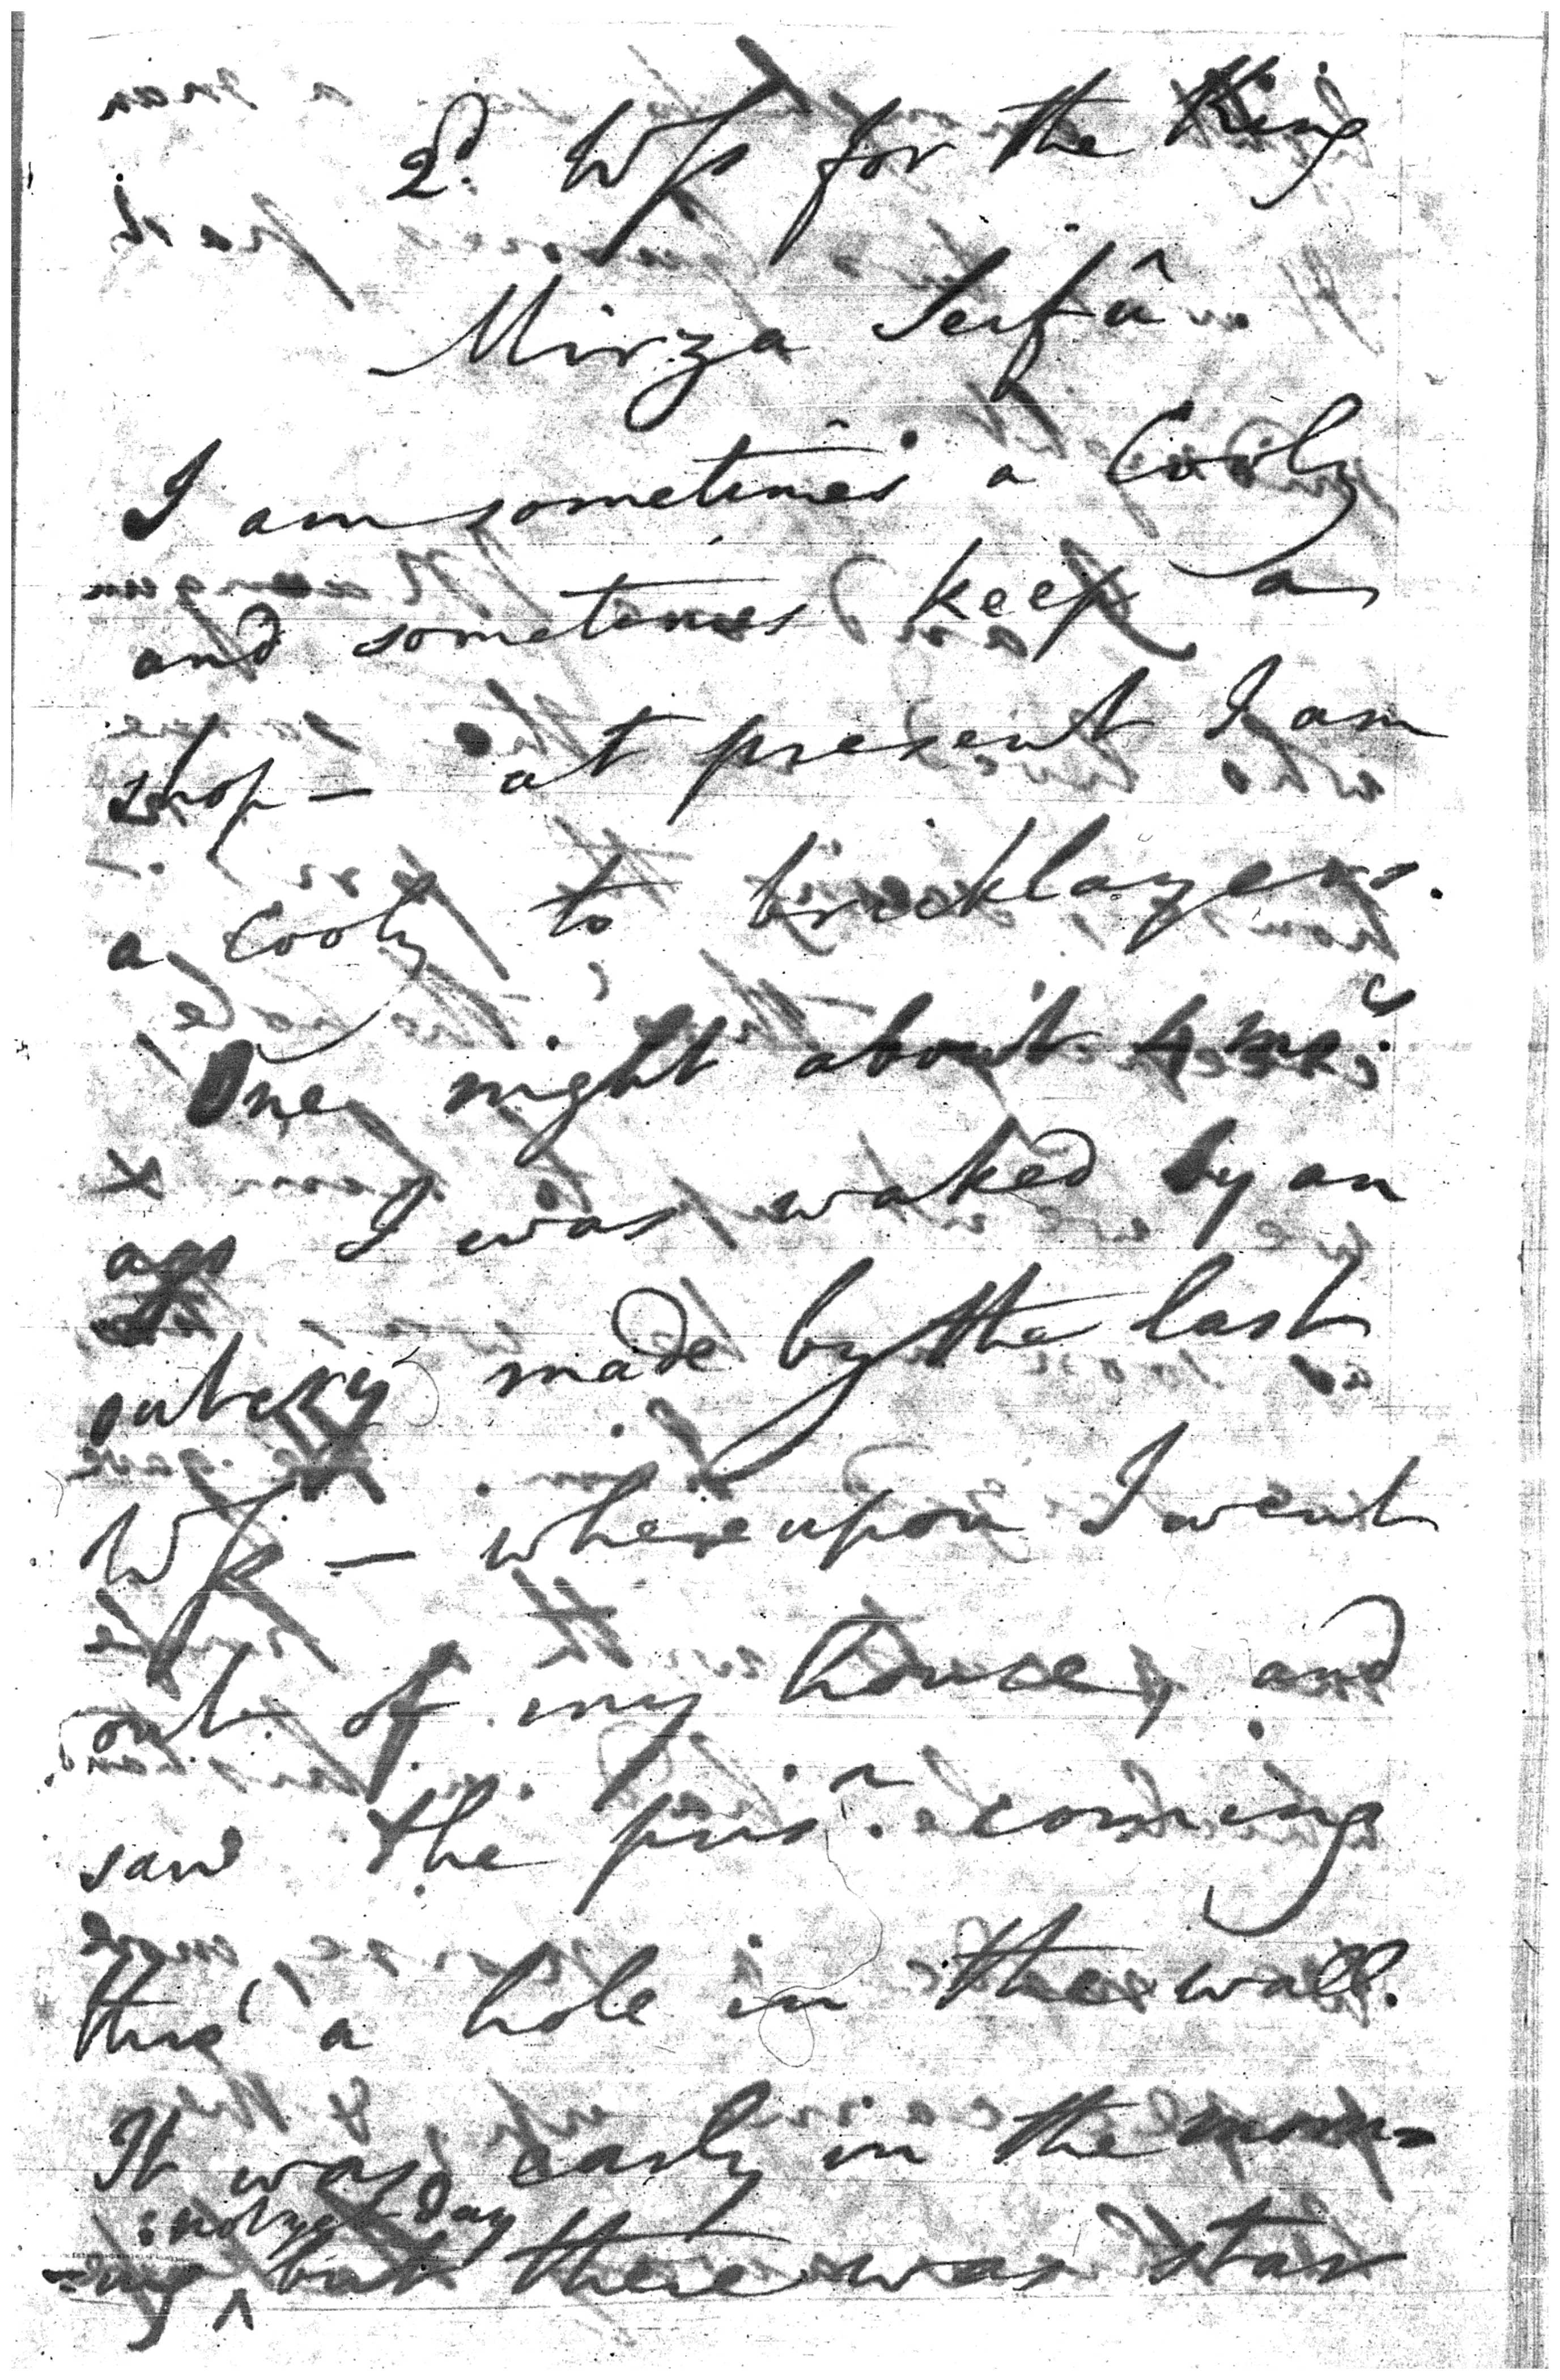 2d. Wss for the King
Mirza
I am sometimes a Cooly
and sometimes keep a
shop — at present I am
a Cooly to bricklayers.
One night about 4 mos
ago I was waked by an
outcry made by the last
Wss — whereupon I went
out of my house, and
saw the prisr. coming
thro' a hole in the wall.
It was early in the morn=
:not yet day
=ing ^ but there was star